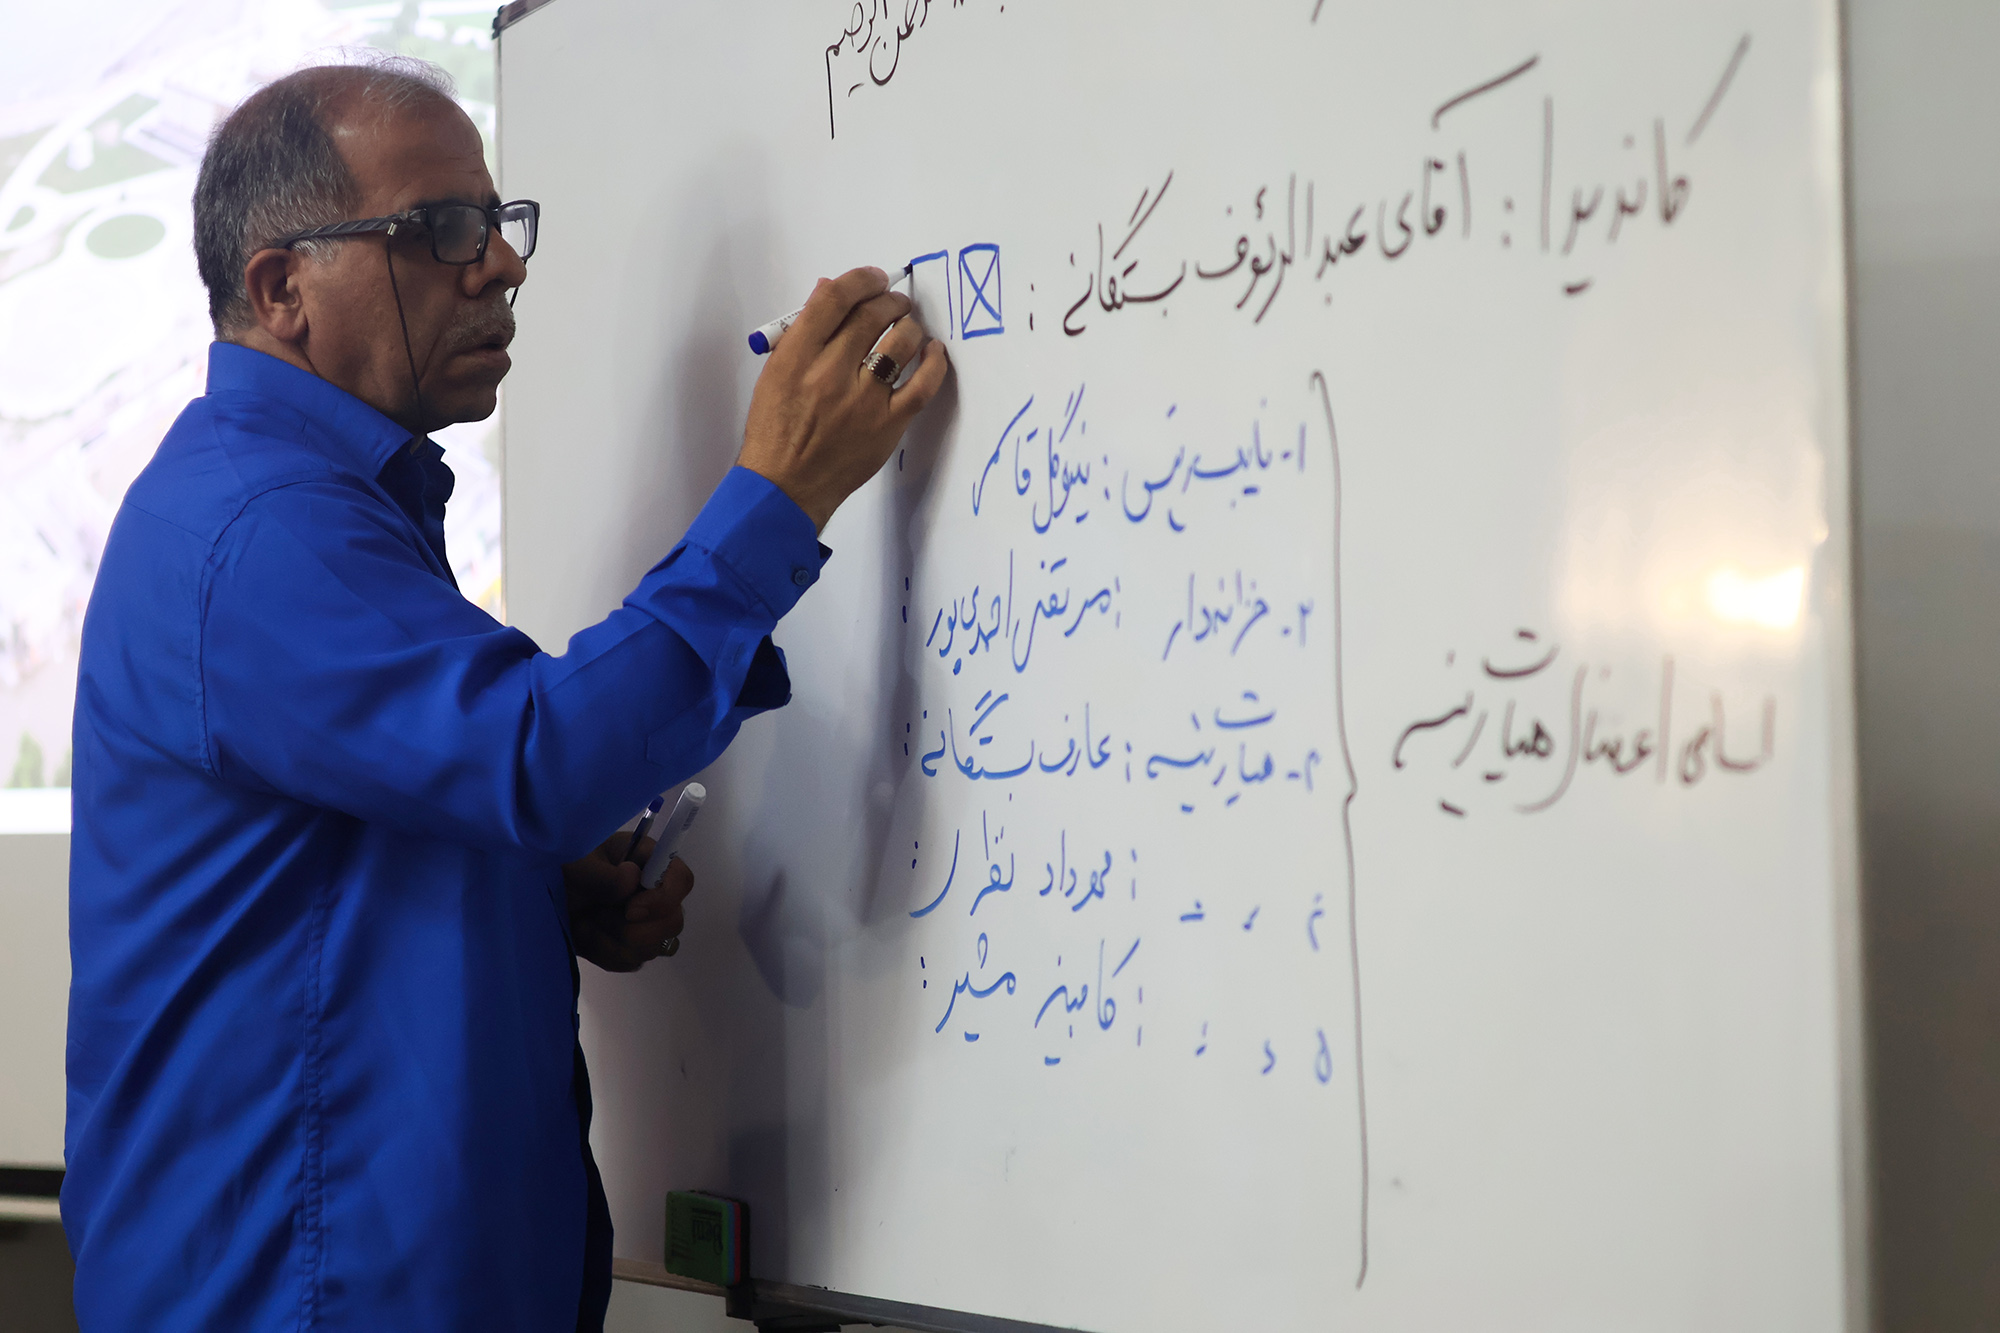 الرحمن الرحیم
کاندیدا : آقای عبدالرئوف بستگانی :
اسامی اعضای هیات رئیسه
۱- نایب رئیس : نینوگل قاسم
۲- خزانه دار : مرتضی احمدی پور :
۳- هیات رئیسه : عارف بستگانی :
۴ : مهرداد نظر :
۵ : کامبیز مشیر :